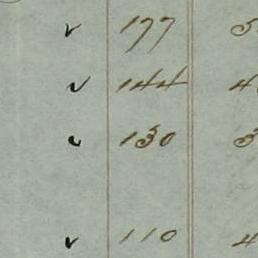 ✓ 177 3
✓ 144 4
✓ 130 3
✓ 110 4